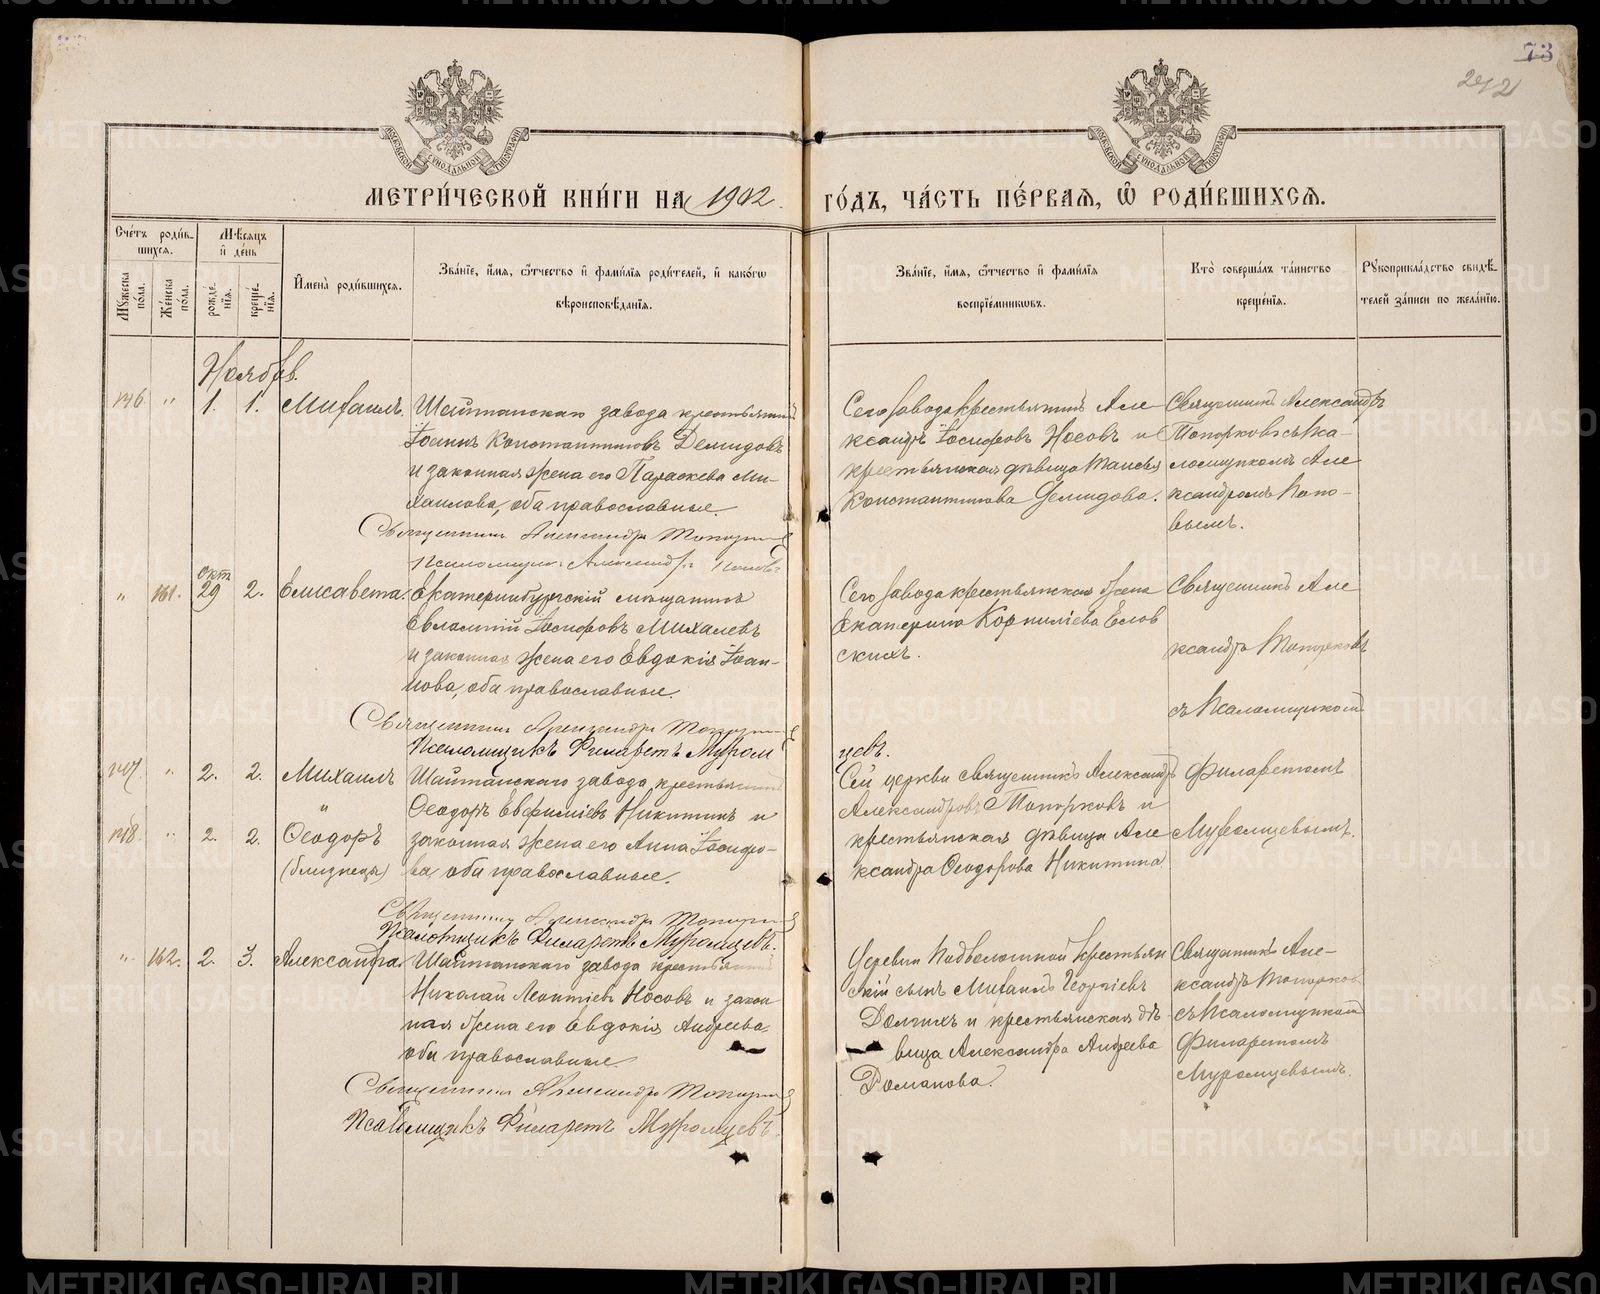 73
242
МОСКОВСКОЙ СѴНОДАЛЬНОЙ ТИПОГРАФІИ
МОСКОВСКОЙ СѴНОДАЛЬНОЙ ТИПОГРАФІИ
МЕТРИ́ЧЕСКОЙ КНИ́ГИ НА 1902 ГО́ДЪ, ЧА́СТЬ ПЕ́РВАѦ, Ѡ РОДИ́ВШИХСѦ.
Сче́тъ роди́в-
шихсѧ.
Мѣ́сѧцъ
и҆ де́нь
Мꙋ́жеска
по́ла.
Же́нска
по́ла.
рожде́-
нїѧ.
креще́-
нїѧ.
И҆мена̀ роди́вшихсѧ.
Зва́нїе, и҆́мѧ, ѻ҆́тчество и҆ фамѝлїѧ роди́телей, и҆ како́гѡ
вѣроисповѣ́данїѧ.
Зва́нїе, и҆́мѧ, ѻ҆́тчество и҆ фамѝлїѧ
воспрїе́мникѡвъ.
Кто̀ соверша́лъ та́инство
креще́нїѧ.
Рꙋкоприкла́дство свидѣ́-
телей за́писи по жела́нїю.
Ноябрь.
146 " 1. 1. Михаилъ.
Шайтанскаго завода крестьянинъ
Іоаннъ Константиновъ Демидовъ
и законная жена его Параскева Ми-
хаилова, оба православные.
Священникъ Александръ Топорковъ
Псаломщикъ Александръ Поповъ
Сего завода крестьянинъ Але
ксандръ Іосифовъ Носовъ и
крестьянская дѣвица Таисья
Константинова Демидова.
Священникъ Александръ
Топорковъ съ пса-
ломщикомъ Але
ксандромъ Попо-
вымъ.
" 161. окт. 29 2. Елисавета
Екатеринбургскій мѣщанинъ
Евлампій Іосифовъ Михалевъ
и законная жена его Евдокія Іоан-
нова, оба православные.
Священникъ Александръ Топорковъ
Псаломщикъ Филаретъ Муром
цевъ.
Сего завода крестьянская жена
Екатерина Корниліева Елов
скихъ.
Священникъ Але
ксандръ Топорковъ
съ Псаломщикомъ
147. " 2. 2. Михаилъ
и
148. " 2. 2. Ѳеодоръ
(близнецы)
Шайтанскаго завода крестьянинъ
Ѳеодоръ Евфиміевъ Никитинъ и
законная жена его Анна Іосифо-
ва, оба православные.
Священникъ Александръ Топорковъ
Псаломщикъ Филаретъ Муромцевъ.
Сей церкви священникъ Александръ
Александровъ Топорковъ и
крестьянская дѣвица Але
ксандра Ѳеодорова Никитина.
Филаретомъ
Муромцевымъ.
" 162. 2. 3. Александра.
Шайтанскаго завода крестьянинъ
Николай Леонтіевъ Носовъ и закон
ная жена его Евдокія Андреева,
оба православные.
Священникъ Александръ Топорковъ
Псаломщикъ Филаретъ Муромцевъ.
Деревни Подволошной крестьян
скій сынъ Михаилъ Георгіевъ
Долгихъ и крестьянская дѣ-
вица Александра Андреева
Романова.
Священникъ Але-
ксандръ Топорковъ
съ Псаломщикомъ
Филаретомъ
Муромцевымъ.
METRIKI.GASO-URAL.RU